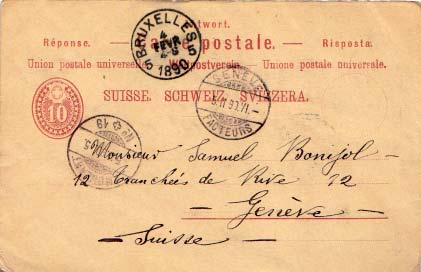 Antwort.
Réponse. — Carte postale. — Risposta
Union postale universelle. — Weltpostverein. — Unione postale universale.
SUISSE. SCHWEIZ. SVIZZERA.
10
5 BRUXELLES 5
4
FEVR
1890
GENÈVE
FACTEURS
Monsieur Samuel Bonijol -
12 Tranchées de Rive 12
- Genève -
- Suisse -